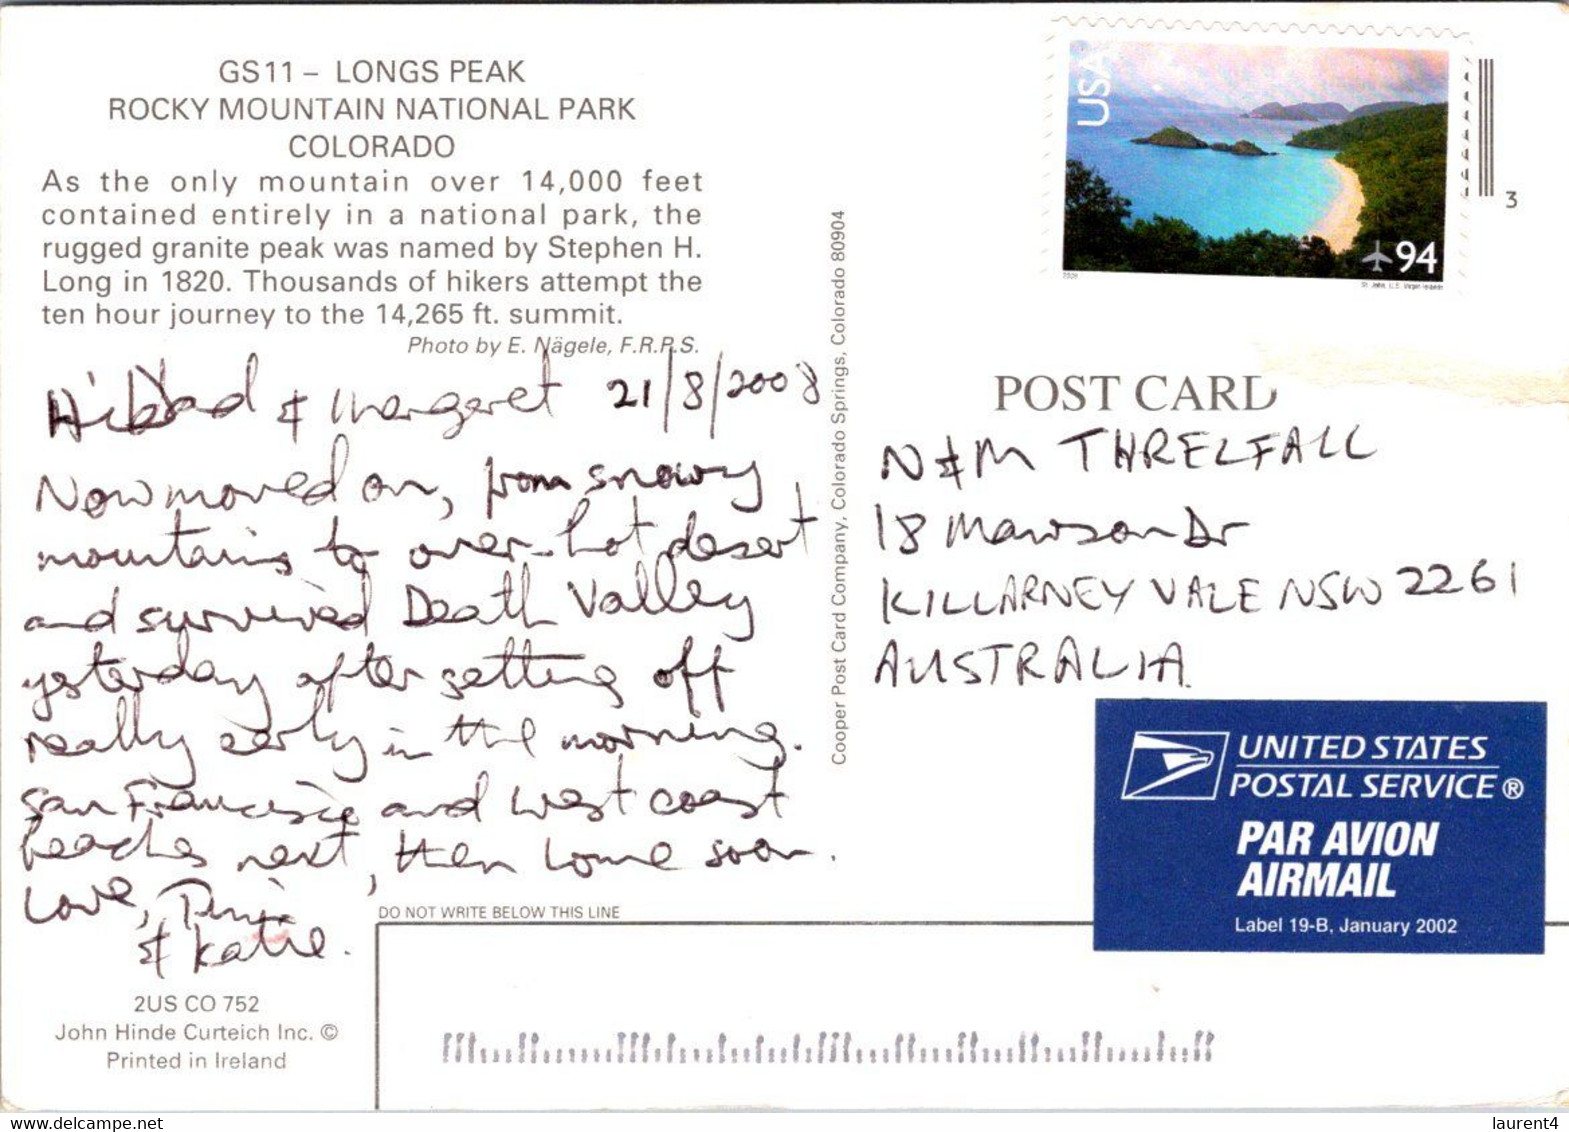 GS11 – LONGS PEAK
ROCKY MOUNTAIN NATIONAL PARK
COLORADO
As the only mountain over 14,000 feet
contained entirely in a national park, the
rugged granite peak was named by Stephen H.
Long in 1820. Thousands of hikers attempt the
ten hour journey to the 14,265 ft. summit.
Photo by E. Nägele, F.R.P.S.
Hi Dad & Margaret 21/8/2008
Now moved on, from snowy
mountains to over-hot desert
and survived Death Valley
yesterday after setting off
really early in the morning.
San Francisco and west coast
beaches next, then home soon.
Love,
& Katie.
2US CO 752
John Hinde Curteich Inc. ©
Printed in Ireland
Cooper Post Card Company, Colorado Springs, Colorado 80904
USA
94
St. John, U.S. Virgin Islands
3
POST CARD
N & M THRELFALL
18 Mawson Dr
KILLARNEY VALE NSW 2261
AUSTRALIA.
UNITED STATES
POSTAL SERVICE®
PAR AVION
AIRMAIL
Label 19-B, January 2002
DO NOT WRITE BELOW THIS LINE
laurent4